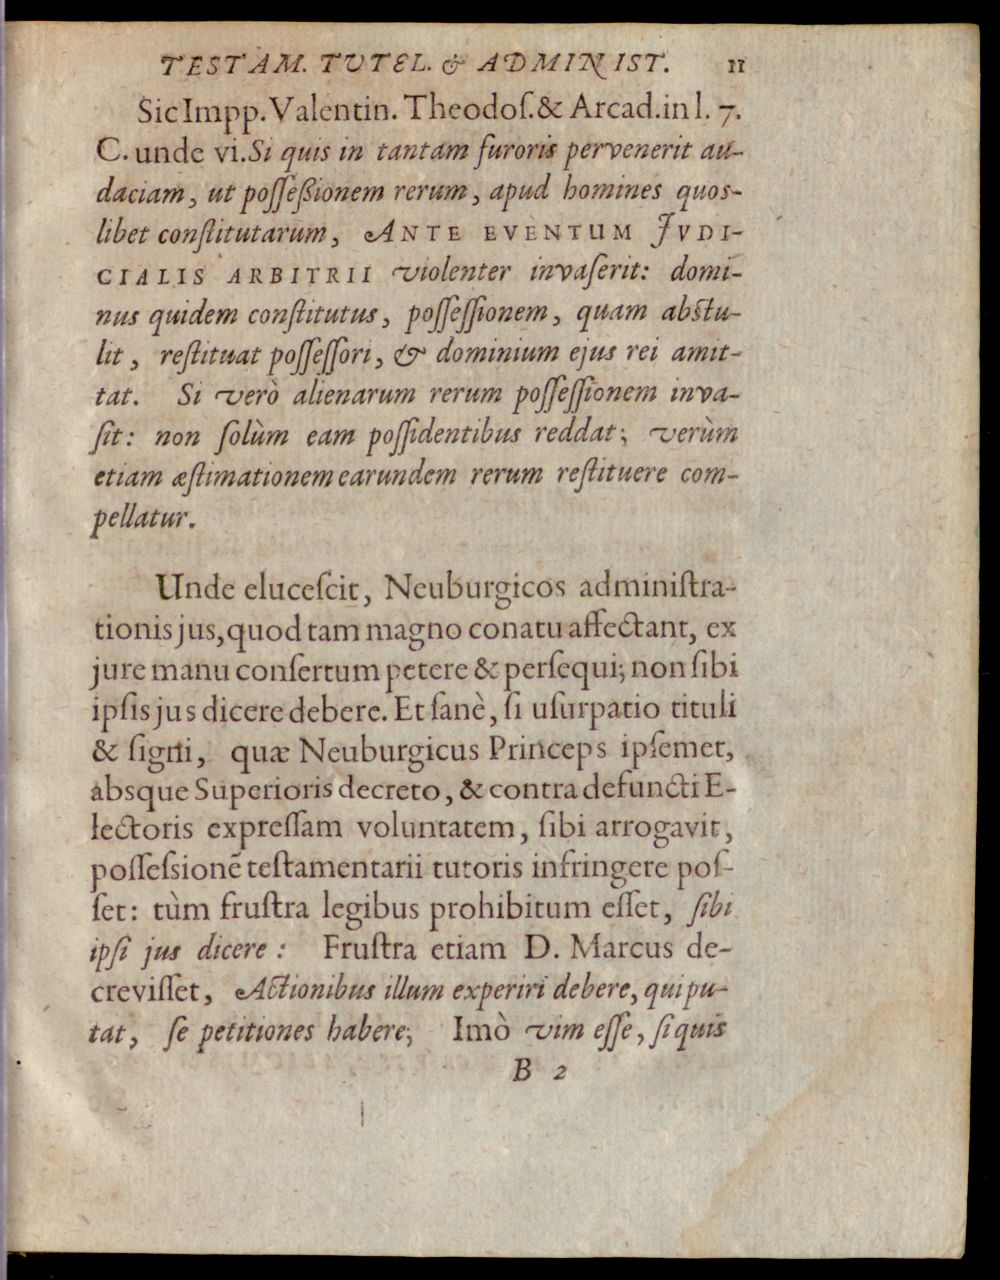 TESTAM. TVTEL. & ADMINIST. 11
Sic Impp. Valentin. Theodoſ. & Arcad. in l. 7.
C. unde vi. Si quis in tantam furoris pervenerit au-
daciam, ut poſſeßionem rerum, apud homines quos-
libet conſtitutarum, ANTE EVENTUM JVDI-
CIALIS ARBITRII violenter invaſerit: domi-
nus quidem conſtitutus, poſſeſſionem, quam abſtu-
lit, reſtituat poſſeſſori, & dominium ejus rei amit-
tat. Si verò alienarum rerum poſſeſſionem inva-
ſit: non ſolùm eam poſſidentibus reddat; verùm
etiam æſtimationem earundem rerum reſtituere com-
pellatur.
Unde eluceſcit, Neuburgicos adminiſtra-
tionis jus, quod tam magno conatu affectant, ex
jure manu conſertum petere & perſequi; non ſibi
ipſis jus dicere debere. Et ſanè, ſi uſurpatio tituli
& ſigni, quæ Neuburgicus Princeps ipſemet,
absque Superioris decreto, & contra defuncti E-
lectoris expreſſam voluntatem, ſibi arrogavit,
poſſeſsionē teſtamentarii tutoris infringere poſ-
ſet: tùm fruſtra legibus prohibitum eſſet, ſibi
ipſi jus dicere: Fruſtra etiam D. Marcus de-
creviſſet, Actionibus illum experiri debere, qui pu-
tat, ſe petitiones habere; Imò vim eſſe, ſi quis
B 2